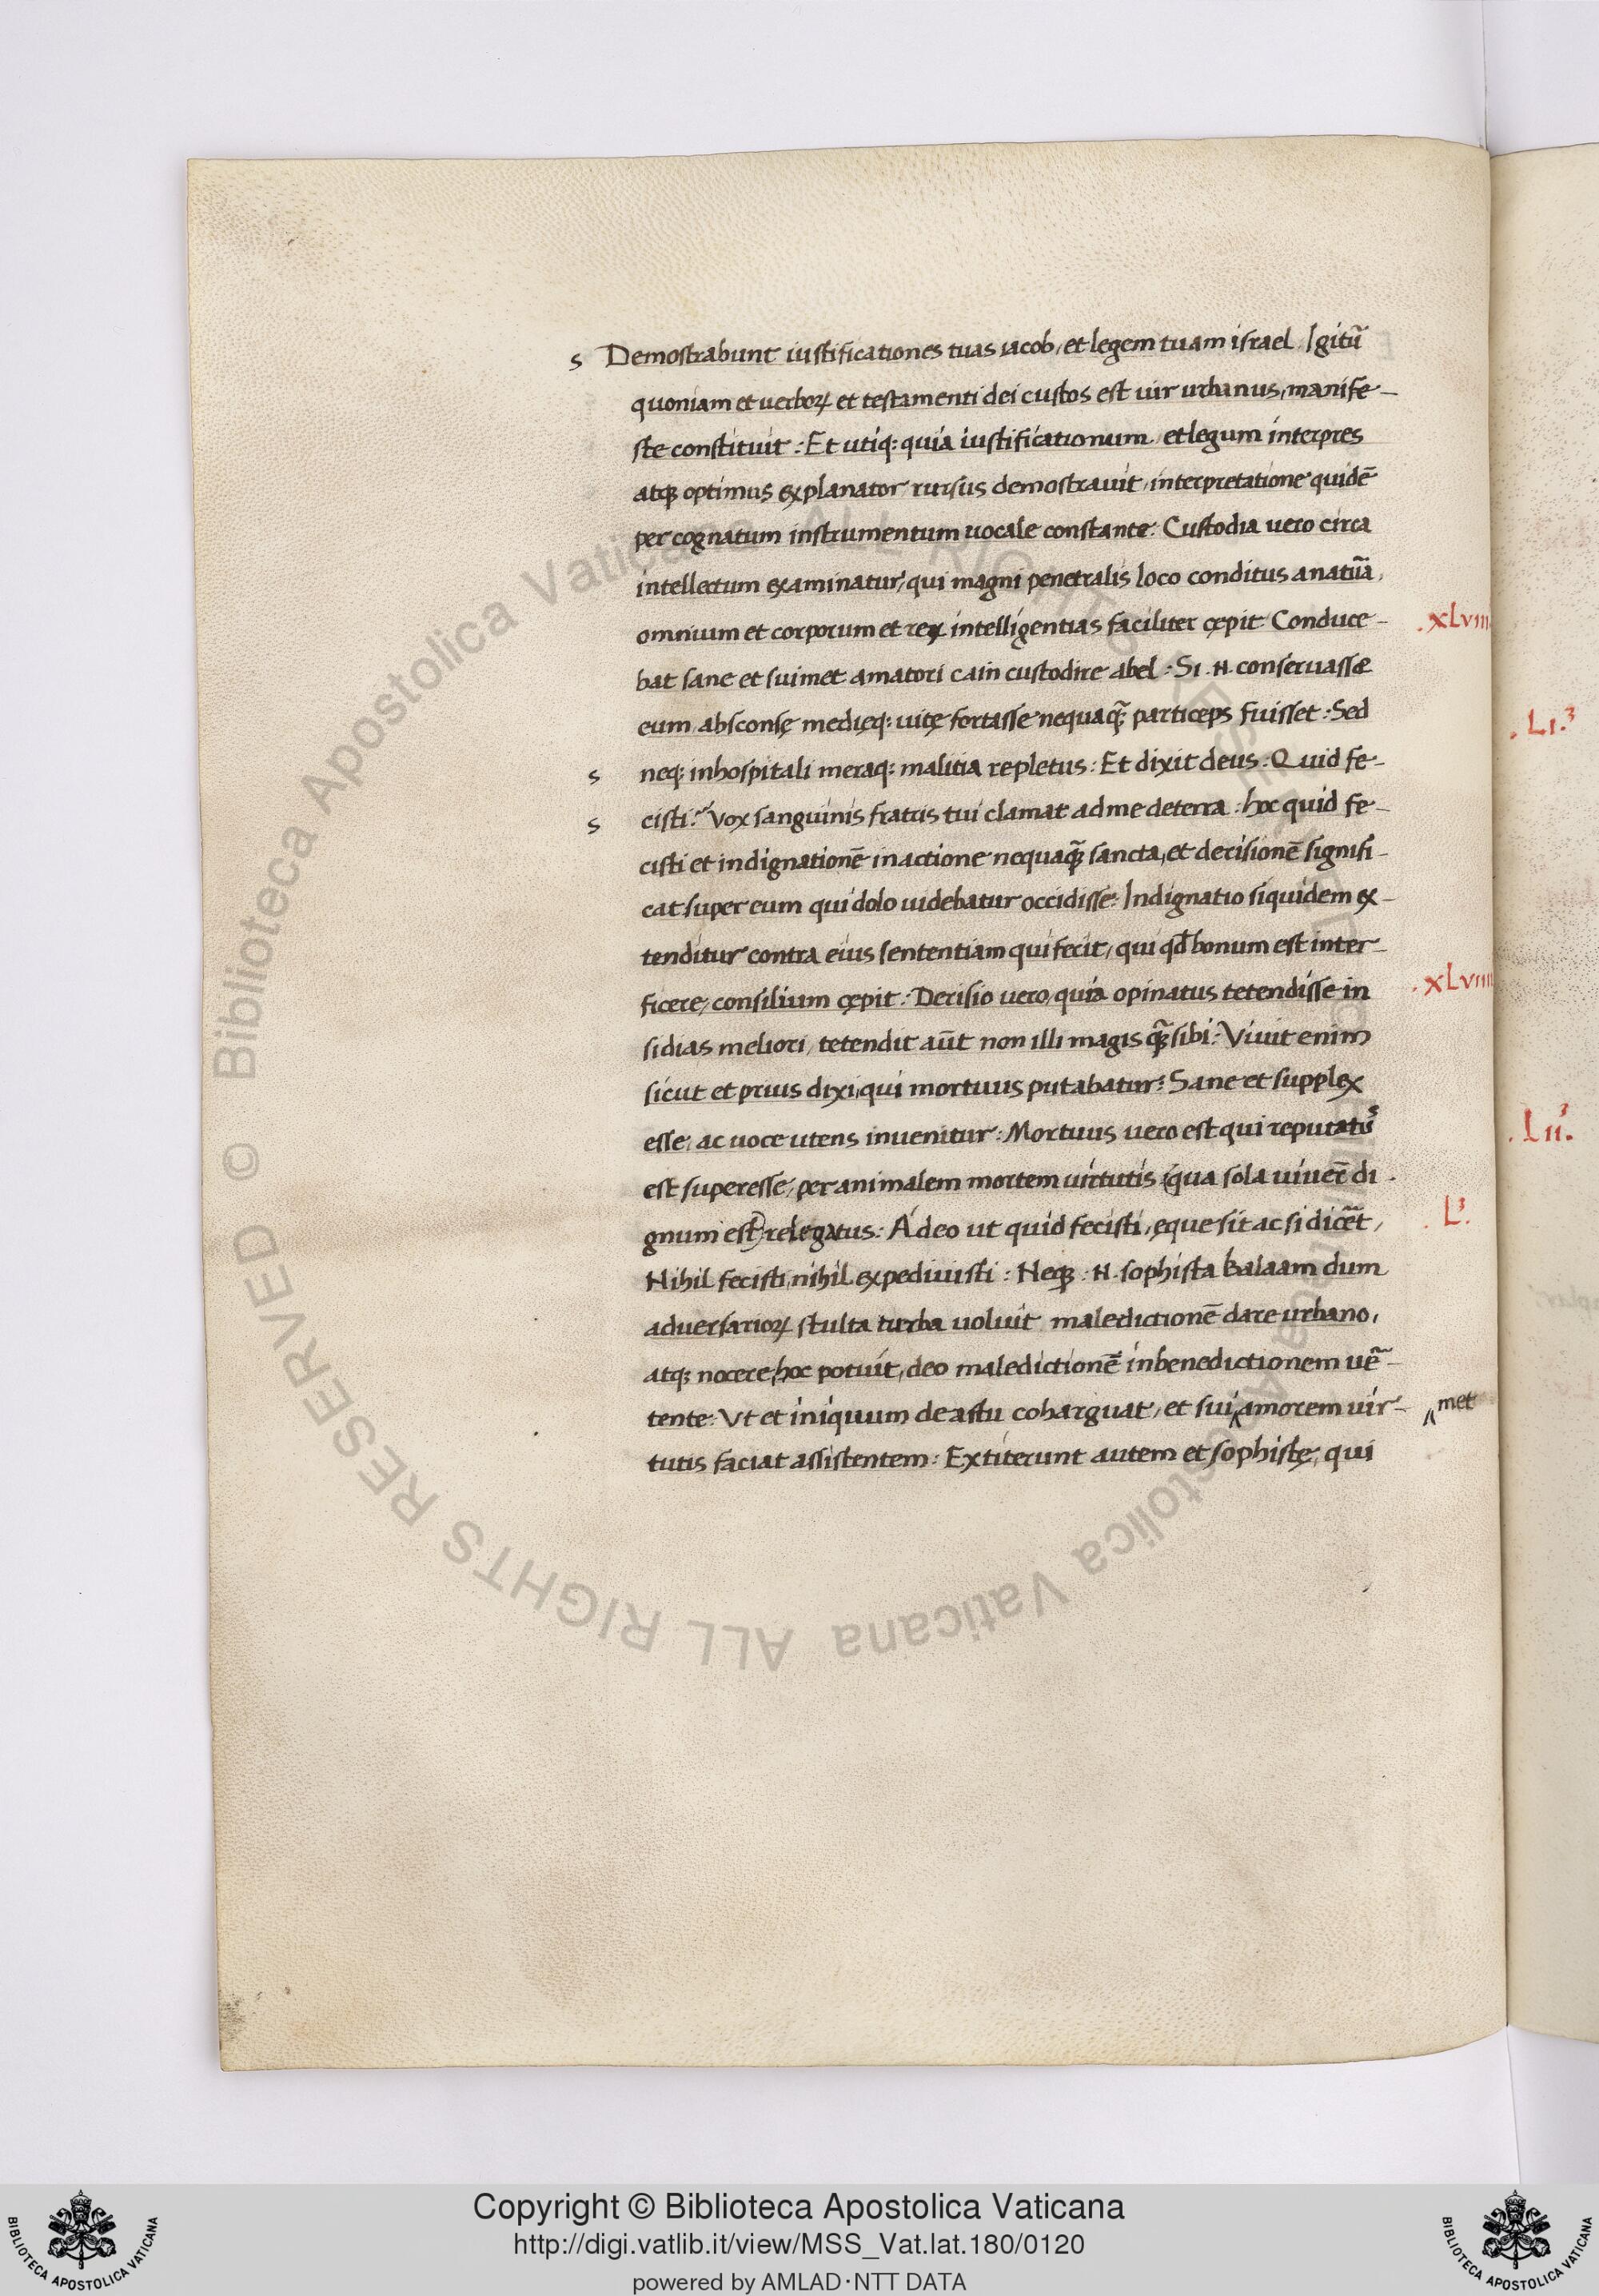 s Demostrabunt iustificationes tuas iacob, et legem tuam israel. Igitũ
quoniam et verboꝝ et testamenti dei custos est uir urbanus, manife-
ste constituit: Et utiq: quia iustificationum, et legum interpres
atq; optimus explanator rursus demostrauit, interpretatione quidẽ
per cognatum instrumentum uocale constante: Custodia uero circa
intellectum examinatur, qui magni penetralis loco conditus a natũa,
omnium et corporum et reꝝ intelligentias faciliter cępit Conduce- .xLviii.
bat sane et suimet amatori cain custodire abel: Si .N. conseruasset
eum, absconsę medięq: uitę fortasse nequaq̃; particeps fuisset: Sed
s neq: inhospitali meraq: malitia repletus: Et dixit deus: Quid fe-
s cisti? Vox sanguinis fratris tui clamat ad me de terra: hoc quid fe-
cisti et indignationẽ in actione nequaq̃; sancta, et derisionẽ signifi-
cat super eum qui dolo uidebatur occidisse: Indignatio siquidem ex-
tenditur contra eius sententiam qui fecit, qui qđ bonum est inter-
ficere, consilium cępit: Derisio uero, quia opinatus tetendisse in .xLviiii
sidias meliori, tetendit aũt non illi magis q̃; sibi: Viuit enim
sicut et prius dixi, qui mortuus putabatur: Sane et supplex
esse, ac uoce utens inuenitur: Mortuus uero est qui reputatus
est superesse, per animalem mortem uirtutis (qua sola uiuerẽ di
gnum est) relegatus: Adeo ut quid fecisti, eque sit ac si dicẽt, .L³.
Nihil fecisti, nihil expediuisti: Neq; .N. sophista balaam dum
aduersarioꝝ stulta turba uoluit maledictionẽ dare urbano,
atq; nocere, hoc potuit, deo maledictionẽ in benedictionem uẽ-
tente: Vt et iniquum de astu coharguat, et sui^amorem uir- ^met
tutis faciat assistentem: Extiterunt autem et sophistę, qui
.Li.³
.Lii.³
Copyright © Biblioteca Apostolica Vaticana
http://digi.vatlib.it/view/MSS_Vat.lat.180/0120
powered by AMLAD·NTT DATA
BIBLIOTECA APOSTOLICA VATICANA
BIBLIOTECA APOSTOLICA VATICANA
© Biblioteca Apostolica Vaticana ALL RIGHTS RESERVED
© Biblioteca Apostolica Vaticana ALL RIGHTS RESERVED